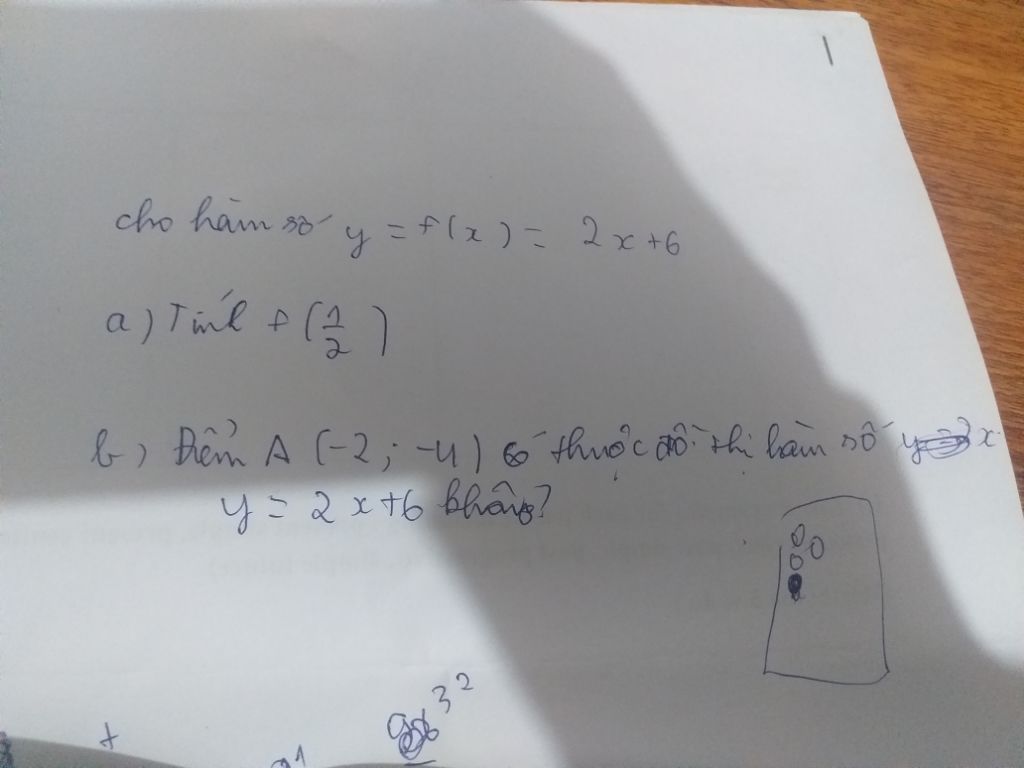 cho hàm số y = f(x) = 2x+6
a) Tính f(1/2)
b) Điểm A (-2; -4) có thuộc đồ thị hàm số x
y = 2x+6 không?
3 2
+